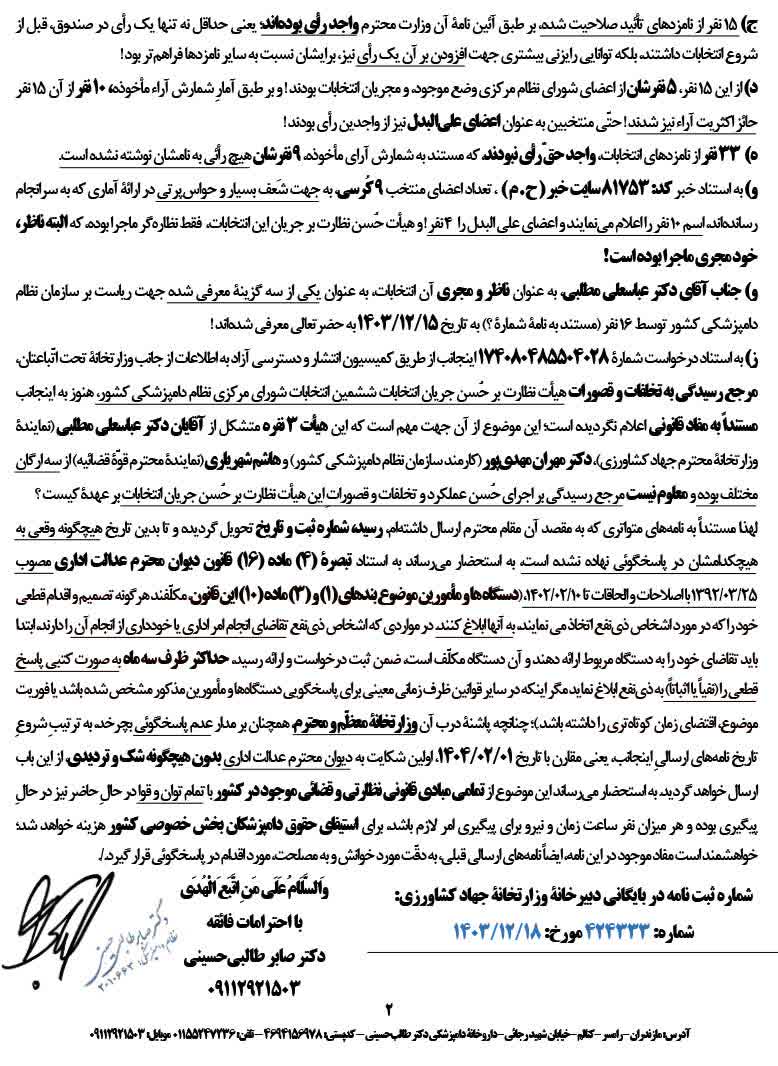 ج) ۱۵ نفر از نامزدهای تأئید صلاحیت شده، بر طبق آئین نامهٔ آن وزارت محترم واجد رأی بوده‌اند؛ یعنی حداقل نه تنها یک رأی در صندوق، قبل از
شروع انتخابات داشتند، بلکه توانایی رایزنی بیشتری جهت افزودن بر آن یک رأی نیز، برایشان نسبت به سایر نامزدها فراهم‌تر بود!
د) از این ۱۵ نفر، ۵ نفرشان از اعضای شورای نظام مرکزی وضع موجود، و مجریان انتخابات بودند! و بر طبق آمارِ شمارش آراء مأخوذه، ۱۰ نفر از آن ۱۵ نفر
حائز اکثریت آراء نیز شدند! حتّی منتخبین به عنوان اعضای علی‌البدل نیز از واجدین رأی بودند!
ه) ۳۳ نفر از نامزدهای انتخابات، واجد حقّ رأی نبودند، که مستند به شمارش آرای مأخوذه، ۹ نفرشان هیچ رأئی به نامشان نوشته نشده است.
و) به استناد خبر کد: ۸۱۷۵۳ سایت خبر (ح . م ) ، تعداد اعضای منتخب ۹ کُرسی، به جهت شَعَف بسیار و حواس‌پرتی در ارائهٔ آماری که به سرانجام
رسانده‌اند، اسم ۱۰ نفر را اعلام می‌نمایند و اعضای علی البدل را ۴ نفر! و هیأت حُسن نظارت بر جریان این انتخابات، فقط نظاره‌گر ماجرا بوده، که البته ناظر،
خود مجری ماجرا بوده است!
و) جناب آقای دکتر عباسعلی مطلبی، به عنوان ناظر و مجری آن انتخابات، به عنوان یکی از سه گزینهٔ معرفی شده جهت ریاست بر سازمان نظام
دامپزشکی کشور توسط ۱۶ نفر (مستند به نامهٔ شمارهٔ ؟) به تاریخ ۱۴۰۳/۱۲/۱۵ به حضرتعالی معرفی شده‌اند!
ز) به استناد درخواست شمارهٔ ۱۷۴۰۸۰۴۸۵۵۰۴۰۲۸ اینجانب از طریق کمیسیون انتشار و دسترسی آزاد به اطلاعات از جانب وزارتخانهٔ تحت اتّباعتان،
مرجع رسیدگی به تخلفات و قصورات هیأت نظارت بر حُسن جریان انتخابات ششمین انتخابات شورای مرکزی نظام دامپزشکی کشور، هنوز به اینجانب
مستنداً به مفاد قانونی اعلام نگردیده است؛ این موضوع از آن جهت مهم است که این هیأت ۳ نفره متشکل از آقایان دکتر عباسعلی مطلبی (نمایندهٔ
وزارتخانهٔ محترم جهاد کشاورزی)، دکتر مهران مهدی‌پور (کارمند سازمان نظام دامپزشکی کشور) و هاشم شهریاری (نمایندهٔ محترم قوّهٔ قضائیه) از سه ارگان
مختلف بوده و معلوم نیست مرجع رسیدگی بر اجرای حُسن عملکرد و تخلفات و قصوراتِ این هیأت نظارت بر حُسن جریان انتخابات بر عهدهٔ کیست؟
لهذا مستنداً به نامه‌های متواتری که به مقصد آن مقام محترم ارسال داشته‌ام، رسید، شماره ثبت و تاریخ تحویل گردیده و تا بدین تاریخ هیچگونه وقعی به
هیچکدامشان در پاسخگوئی نهاده نشده است، به استحضار می‌رساند به استناد تبصرهٔ (۴) ماده (۱۶) قانون دیوان محترم عدالت اداری مصوب
۱۳۹۲/۰۳/۲۵ با اصلاحات و الحاقات تا ۱۴۰۲/۰۲/۱۰، (دستگاه‌ها و مأمورین موضوع بندهای (۱) و (۳) ماده (۱۰) این قانون، مکلّفند هرگونه تصمیم و اقدام قطعی
خود را که در مورد اشخاص ذی‌نفع اتخاذ می نمایند، به آنها ابلاغ کنند. در مواردی که اشخاص ذی‌نفع تقاضای انجام امر اداری یا خودداری از انجام آن را دارند، ابتدا
باید تقاضای خود را به دستگاه مربوط ارائه دهند و آن دستگاه مکلّف است، ضمن ثبت درخواست و ارائه رسید، حداکثر ظرف سه ماه به صورت کتبی پاسخ
قطعی را (نفیاً یا اثباتاً) به ذی‌نفع ابلاغ نماید مگر اینکه در سایر قوانین ظرف زمانی معینی برای پاسخگویی دستگاه‌ها و مأمورین مذکور مشخص شده باشد یا فوریت
موضوع، اقتضای زمان کوتاه‌تری را داشته باشد.)؛ چنانچه پاشنهٔ درب آن وزارتخانهٔ معظّم و محترم همچنان بر مدار عدم پاسخگوئی بچرخد، به ترتیبِ شروعِ
تاریخ نامه‌های ارسالیِ اینجانب، یعنی مقارن با تاریخ ۱۴۰۴/۰۲/۰۱، اولین شکایت به دیوان محترم عدالت اداری بدون هیچگونه شک و تردیدی، از این باب
ارسال خواهد گردید. به استحضار می‌رساند، این موضوع از تمامی مبادی قانونی نظارتی و قضائی موجود در کشور با تمام توان و قوا در حالِ حاضر نیز در حالِ
پیگیری بوده و هر میزان نفر ساعت زمان و نیرو برای پیگیری امر لازم باشد، برای استیفای حقوق دامپزشکان بخش خصوصی کشور هزینه خواهد شد؛
خواهشمند است مفاد موجود در این نامه، ایضاً نامه‌های ارسالی قبلی، به دقّت مورد خوانش و به مصلحت، مورد اقدام در پاسخگوئی قرار گیرد./.
وَالسَّلَامُ عَلَی مَنِ اتَّبَعَ الْهُدَی
با احترامات فائقه
دکتر صابر طالبی‌حسینی
۰۹۱۱۲۹۲۱۵۰۳
شماره ثبت نامه در بایگانی دبیرخانهٔ وزارتخانهٔ جهاد کشاورزی:
شماره: ۴۲۴۳۳۳ مورخ: ۱۴۰۳/۱۲/۱۸
دکتر صابر طالبی حسینی
۲
آدرس: مازندران – رامسر – کتالم – خیابان شهید رجائی – داروخانهٔ دامپزشکی دکتر طالب‌حسینی – کدپستی: ۴۶۹۴۱۵۶۹۷۸ – تلفن: ۰۱۱۵۵۲۴۷۲۳۶ موبایل: ۰۹۱۱۲۹۲۱۵۰۳